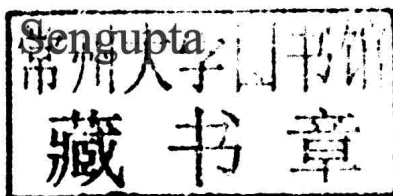 Sengupta
常州大学图书馆
藏书章